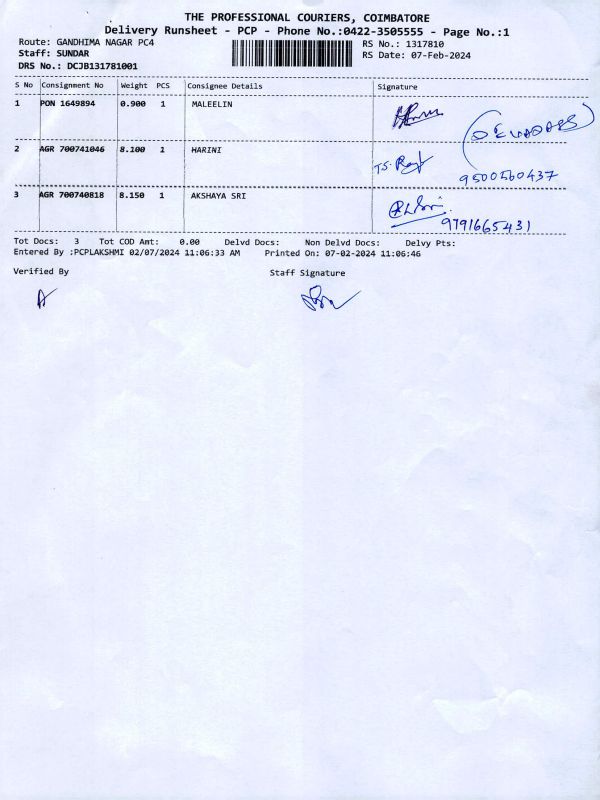 THE PROFESSIONAL COURIERS, COIMBATORE
Delivery Runsheet - PCP - Phone No.:0422-3505555 - Page No.:1
Route: GANDHIMA NAGAR PC4 RS No.: 1317810
Staff: SUNDAR RS Date: 07-Feb-2024
DRS No.: DCJB131781001
S No Consignment No Weight PCS Consignee Details Signature
1 PON 1649894 0.900 1 MALEELIN
2 AGR 700741046 8.100 1 HARINI
9500560437
3 AGR 700740818 8.150 1 AKSHAYA SRI
9791665431
Tot Docs: 3 Tot COD Amt: 0.00 Delvd Docs: Non Delvd Docs: Delvy Pts:
Entered By :PCPLAKSHMI 02/07/2024 11:06:33 AM Printed On: 07-02-2024 11:06:46
Verified By Staff Signature